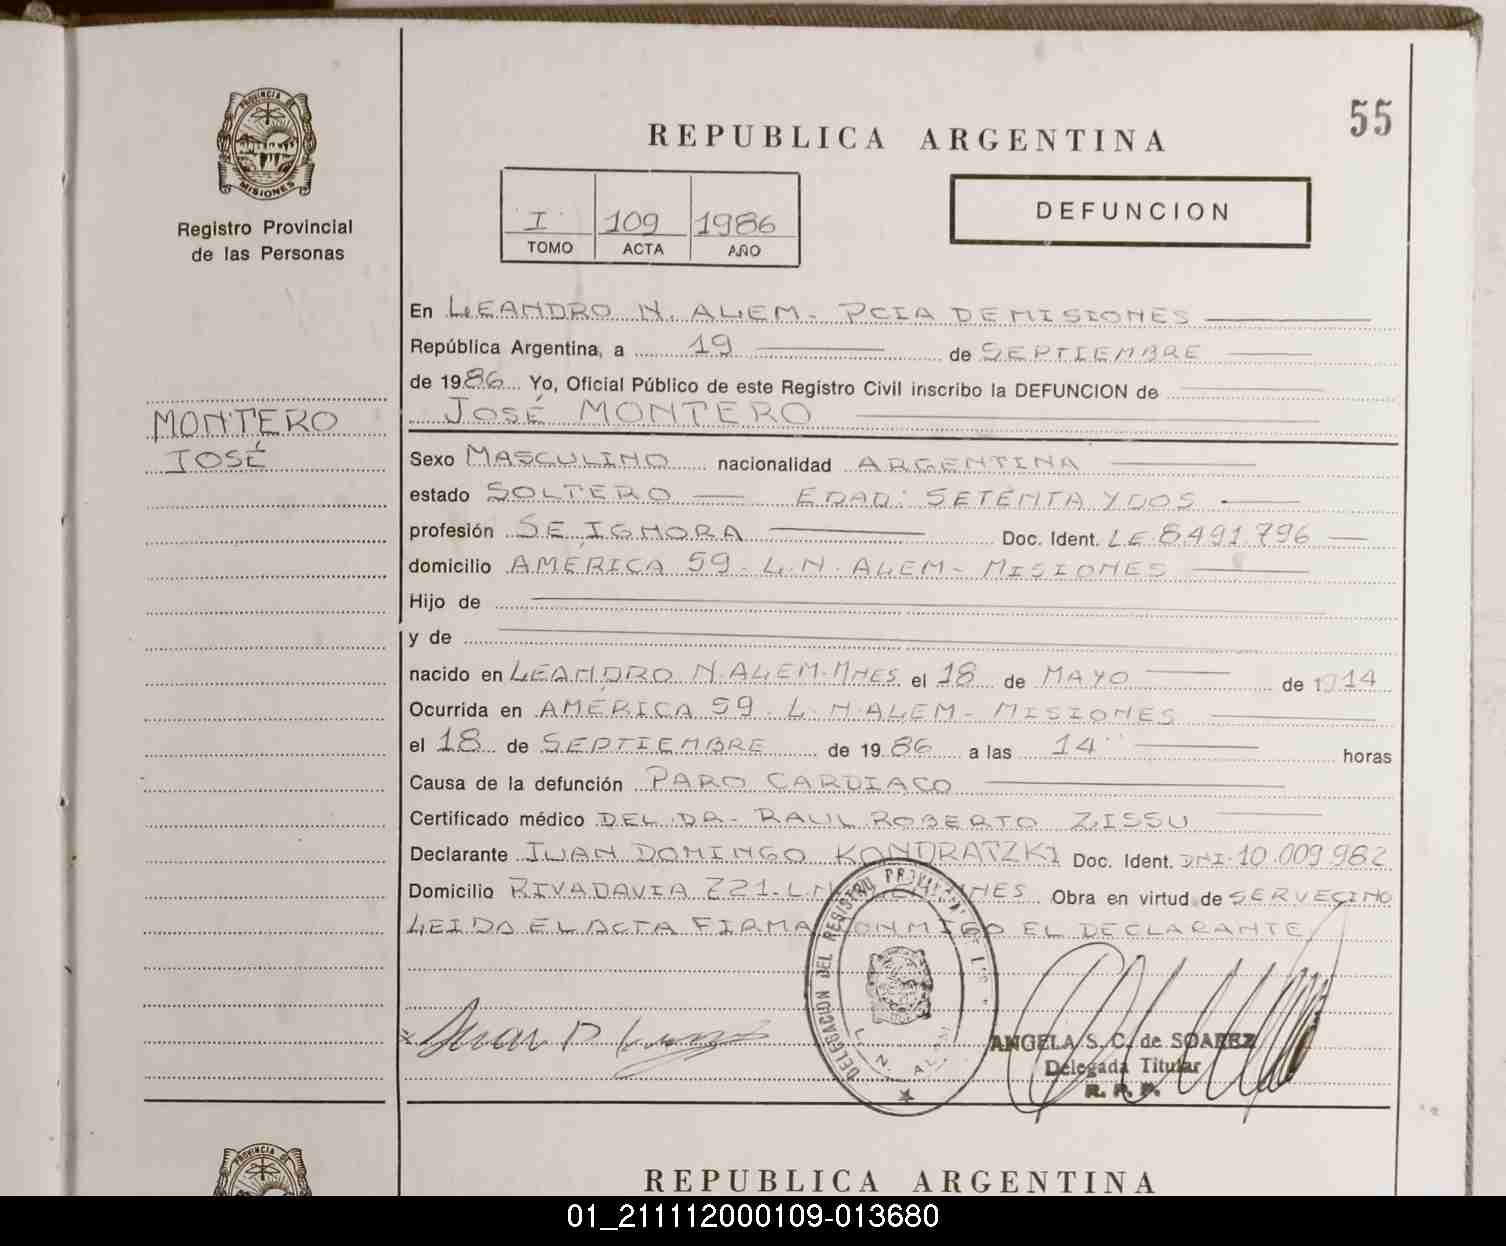 55
PROVINCIA DE
MISIONES
Registro Provincial
de las Personas
REPUBLICA ARGENTINA
I 109 1986
TOMO ACTA AÑO
DEFUNCION
MONTERO
JOSÉ
En LEANDRO N. ALEM - PCIA DE MISIONES
República Argentina, a 19 de SEPTIEMBRE
de 1986 Yo, Oficial Público de este Registro Civil inscribo la DEFUNCION de
JOSÉ MONTERO
Sexo MASCULINO nacionalidad ARGENTINA
estado SOLTERO EDAD: SETENTA Y DOS
profesión SE IGNORA Doc. Ident. LE 8.491.796
domicilio AMÉRICA 59 - L.N. ALEM - MISIONES
Hijo de
y de
nacido en LEANDRO N. ALEM - MNES el 18 de MAYO de 1914
Ocurrida en AMÉRICA 59 - L.N. ALEM - MISIONES
el 18 de SEPTIEMBRE de 1986 a las 14 horas
Causa de la defunción PARO CARDIACO
Certificado médico DEL DR - RAUL ROBERTO ZISSU
Declarante JUAN DOMINGO KONDRATZKI Doc. Ident. DNI-10.009.982
Domicilio RIVADAVIA 221 - L.N. MNES Obra en virtud de SER VECINO
LEIDA EL ACTA FIRMA CONMIGO EL DECLARANTE
DELEGACION DEL REGISTRO PROVINCIAL DE LAS
L. N. ALEM
Juan D
ANGELA S. C. de SOAREZ
Delegada Titular
R. P. P.
PROVINCIA DE
REPUBLICA ARGENTINA
01_211112000109-013680